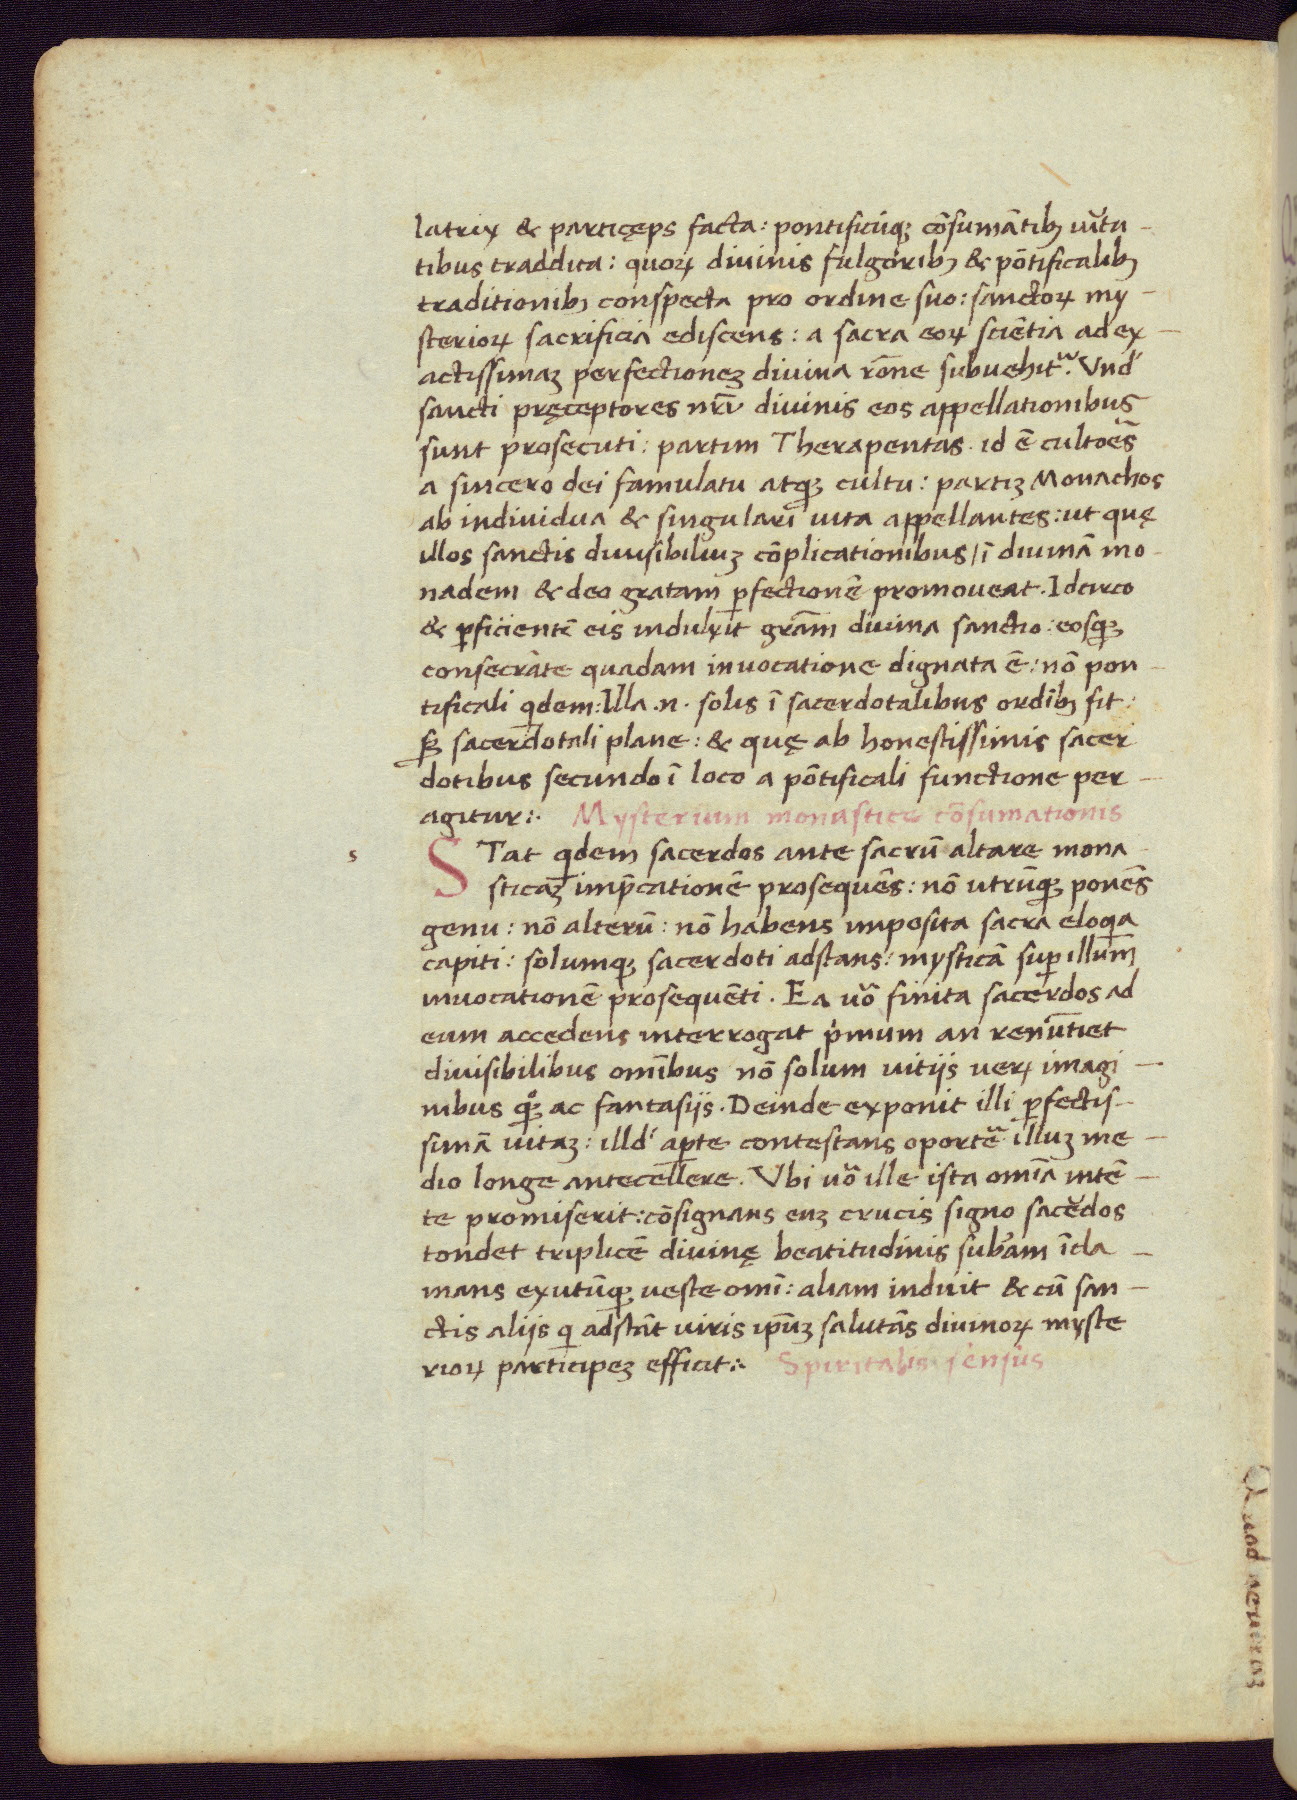 latrix & particęps facta: pontificiīqꝫ cōsumātibꝫ uirtu-
tibus traddita: quoꝝ diuinis fulgoribꝫ & pōtificalibꝫ
traditionibꝫ conspecta pro ordine suo: sanctoꝝ my-
sterioꝝ sacrificia ediscens: a sacra eoꝝ sciētia ad ex-
actissimaꝫ perfectioneꝫ diuina rōne subuehit᷑. Vnd'
sancti pręceptores nr̄i diuinis eos appellationibus
sunt prosecuti: partim Therapeutas. id ē cultoēs
a sincero dei famulatu atqꝫ cultu: partiꝫ Monachos
ab indiuidua & singulari uita appellantes: ut quę
illos sanctis diuisibiliuꝫ cōplicationibus / ī diuinā mo-
nadem & deo gratam ꝑfectionē promoueat. Idcirco
& ꝑficientē eis indulxit grām diuina sanctio: eosqꝫ
consecrāte quadam inuocatione dignata ē: nō pon-
tificali qdem: Illa .n. solis ī sacerdotalibus ordībꝫ fit:
sꝫ sacerdotali plane: & quę ab honestissimis sacer
dotibus secundo ī loco a pōtificali functione per-
agitur:. Mysterium monasticę cōsumationis
s
STat qdem sacerdos ante sacrū altare mona-
sticaꝫ imp̄cationē prosequēs: nō utrūqꝫ ponēs
genu: nō alterū: nō habens imposita sacra eloqa
capiti: solumqꝫ sacerdoti adstans: mysticā suꝑ illum
inuocationē prosequēti. Ea uō finita sacerdos ad
eum accedens interrogat pimum an renūtiet
diuisibilibus omībus nō solum uitijs ueꝝ imagi-
nibus qꝫ ac fantasijs. Deinde exponit illi ꝑfectis-
simā uitaꝫ: illd' aꝑte contestans oportē illuꝫ me-
dio longe antecellere. Vbi uō ille ista omīa intē-
te promiserit: cōsignans euꝫ crucis signo sacědos
tondet triplicē diuinę beatitudinis subām īcla-
mans exutūqꝫ ueste omī: aliam induit & cū san-
ctis alijs q adstāt uiris ip̄uꝫ salutās diuinoꝝ myste
rioꝝ participeꝫ efficit:. Spiritalis sensus